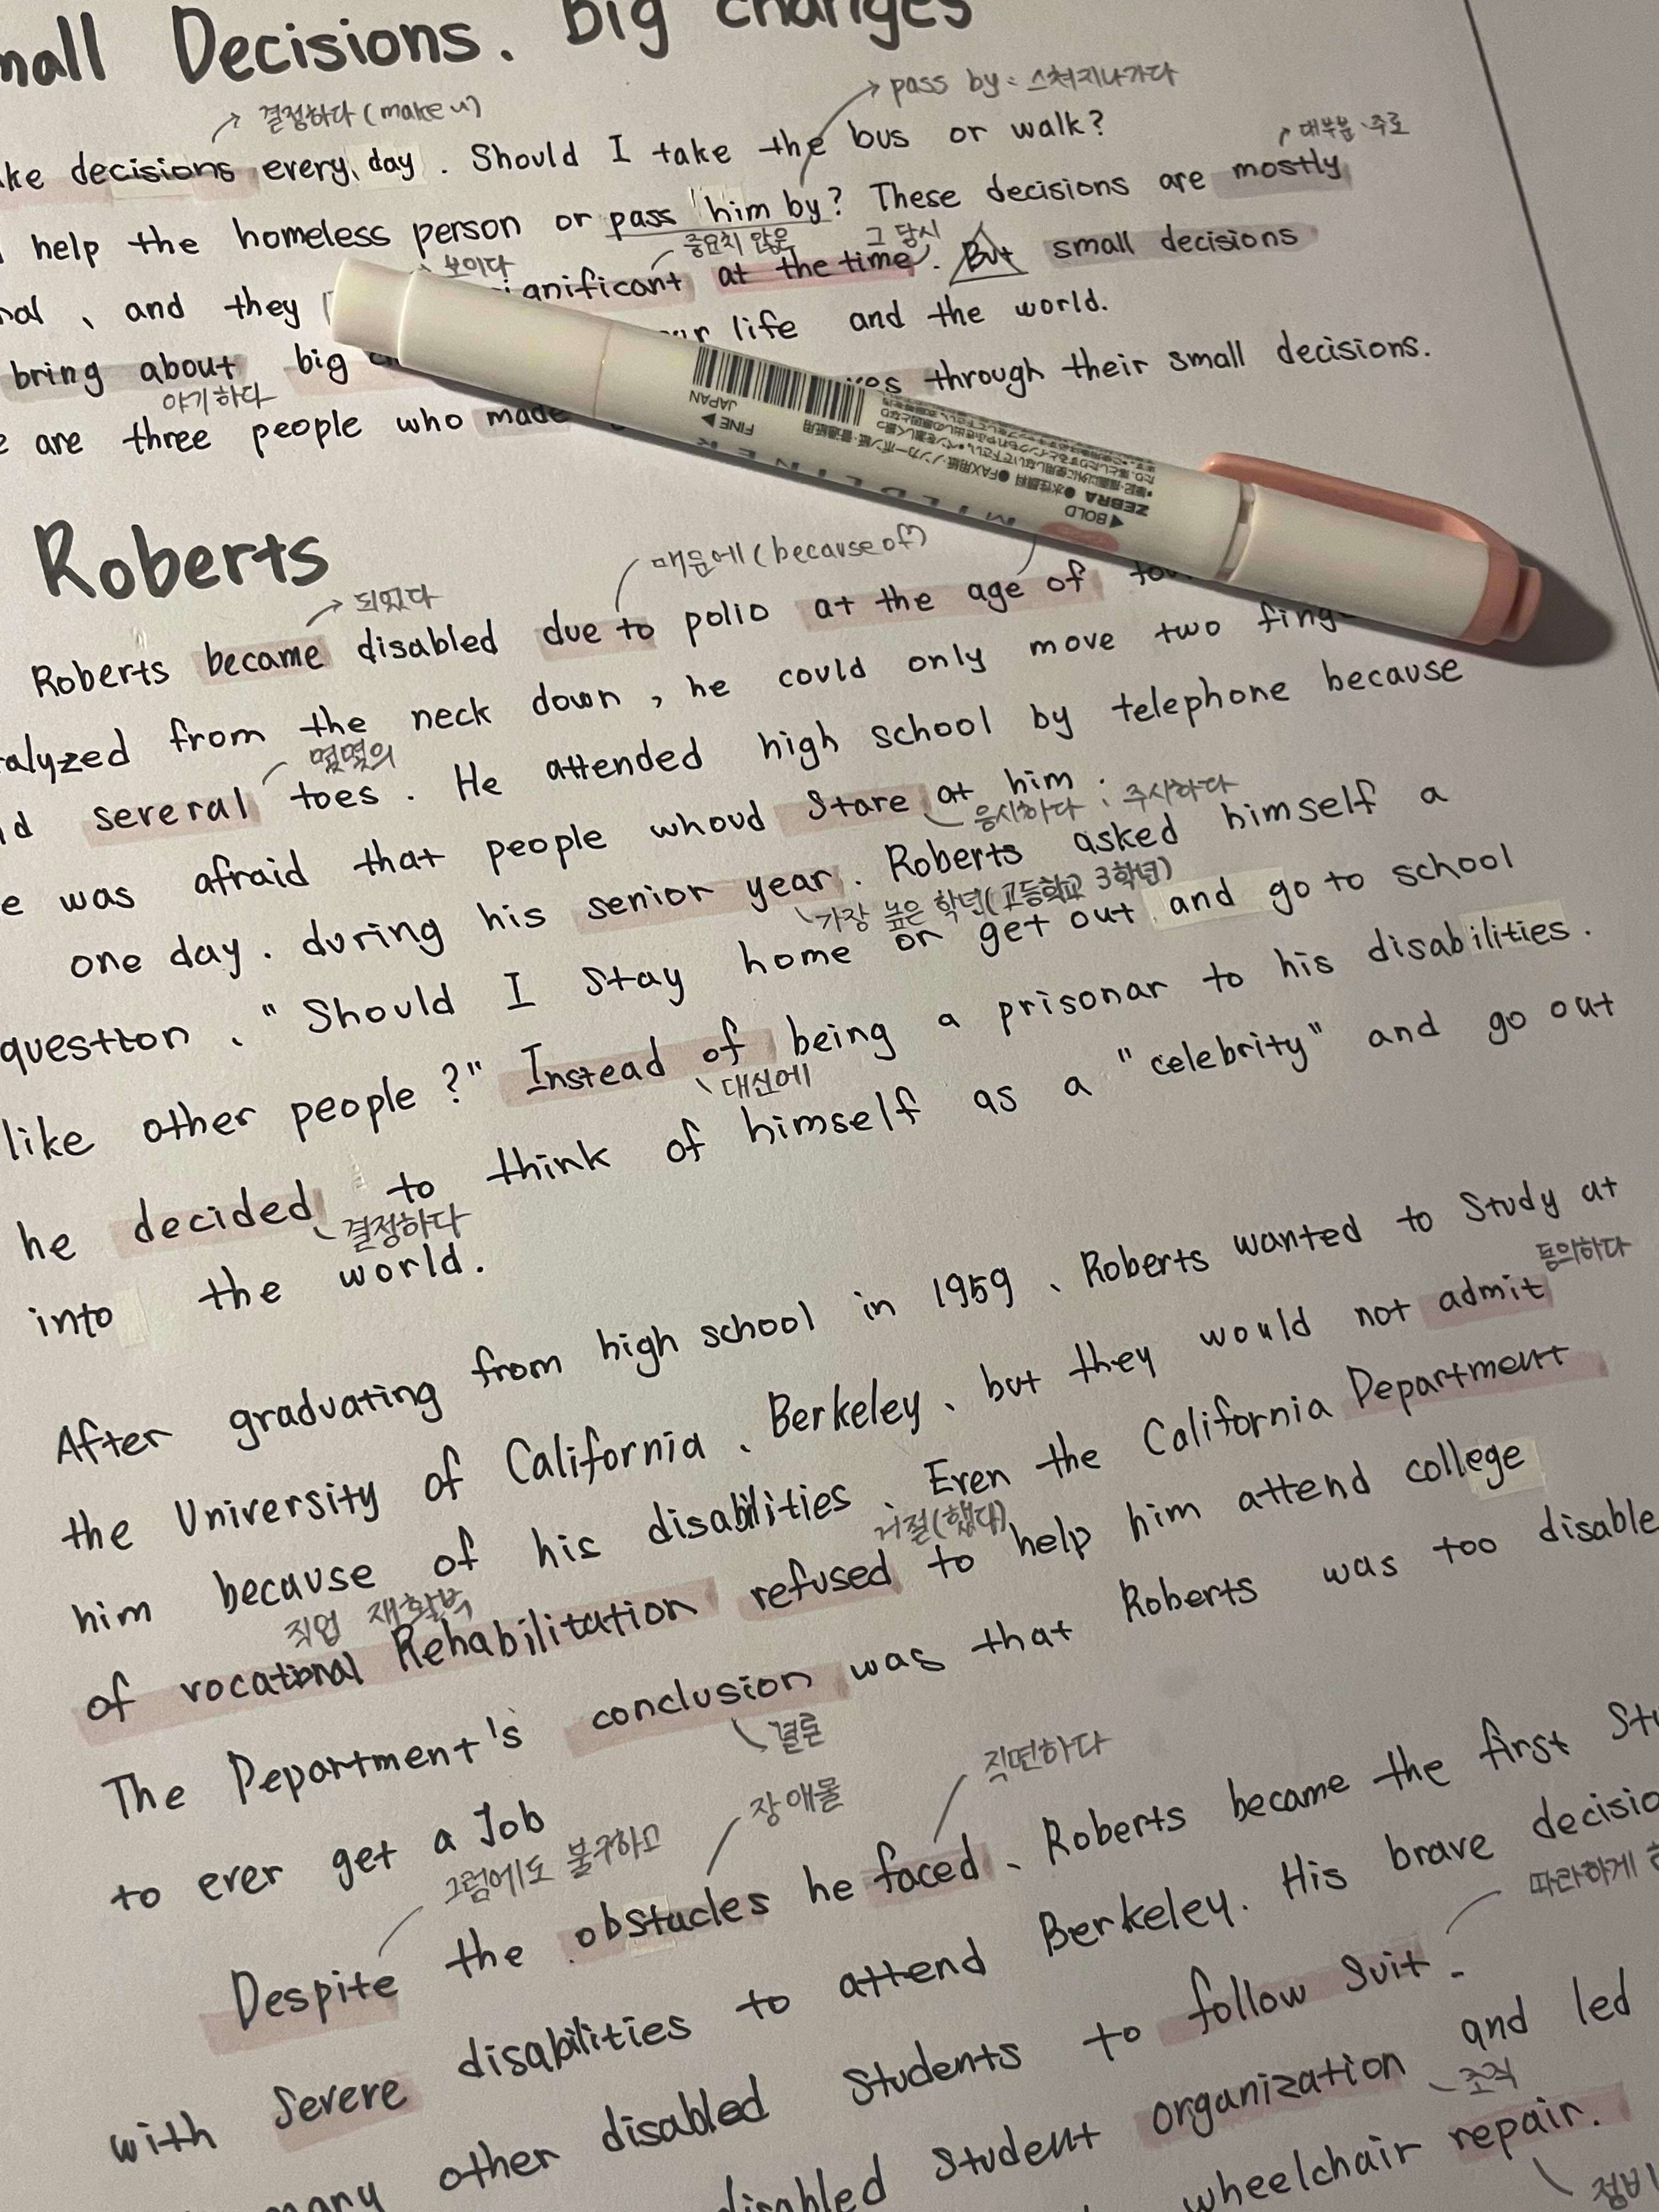 mall Decisions. Big changes
결정하다 (make u)
pass by : 스쳐지나가다
ke decisions every day. Should I take the bus or walk?
대부분·주로
help the homeless person or pass him by? These decisions are mostly
보이다 중요치 않은 그 당시
nal, and they ignificant at the time. But small decisions
bring about big ur life and the world.
야기하다
e are three people who made ves through their small decisions.
JAPAN
FINE
MILDLINER
BOLD
ZEBRA
●水性顔料 ●FAX用紙・ノンカーボン紙・普通紙用
Roberts
되었다
때문에 (because of)
Roberts became disabled due to polio at the age of fou
alyzed from the neck down, he could only move two fing
몇몇의
d several toes. He attended high school by telephone because
e was afraid that people whoud stare at him.
응시하다 : 주시하다
one day. during his senior year. Roberts asked himself a
가장 높은 학년(고등학교 3학년)
questton, "Should I stay home or get out and go to school
like other people?" Instead of being a prisonar to his disabilities.
대신에
he decided to think of himself as a "celebrity" and go out
결정하다
into the world.
After graduating from high school in 1959, Roberts wanted to study at
동의하다
the University of California, Berkeley, but they would not admit
him because of his disabilities. Even the California Department
직업 재활부 거절(했다)
of vocational Rehabilitation refused to help him attend college
The Department's conclusion was that Roberts was too disable
결론
to ever get a Job
그럼에도 불구하고 장애물 직면하다
Despite the obstacles he faced, Roberts became the first Stu
with severe disabilities to attend Berkeley. His brave decisio
따라하게
many other disabled students to follow suit.
disabled student organization and led
조직
wheelchair repair.
정비